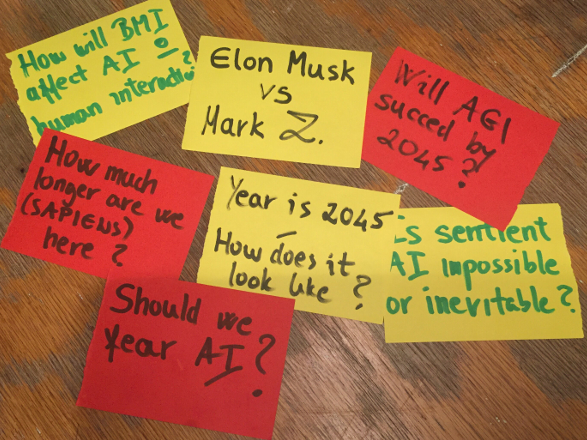 How will BMI
affect AI
human interaction?
Elon Musk
vs
Mark Z.
Will AGI
succed by
2045?
How much
longer are we
(SAPIENS)
here?
Year is 2045
–
How does it
look like?
Is sentient
AI impossible
or inevitable?
Should we
fear AI?